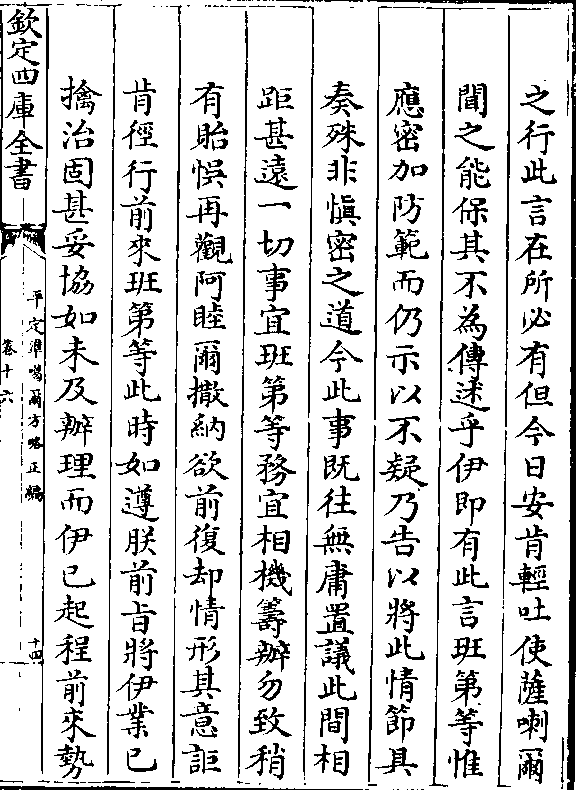 之行此言在所必有但今日安肯輕吐使薩喇爾
聞之能保其不為傳述乎伊即有此言班第等惟
應密加防範而仍示以不疑乃告以將此情節具
奏殊非慎密之道今此事既往無庸置議此間相
距甚遠一切事宜班第等務宜相機籌辦勿致稍
有貽悞再觀阿睦爾撒納欲前復却情形其意詎
肯徑行前來班第等此時如遵朕前旨將伊業已
擒治固甚妥協如未及辦理而伊已起程前來勢
欽定四庫全書
平定準噶爾方略正編
卷十六
十四